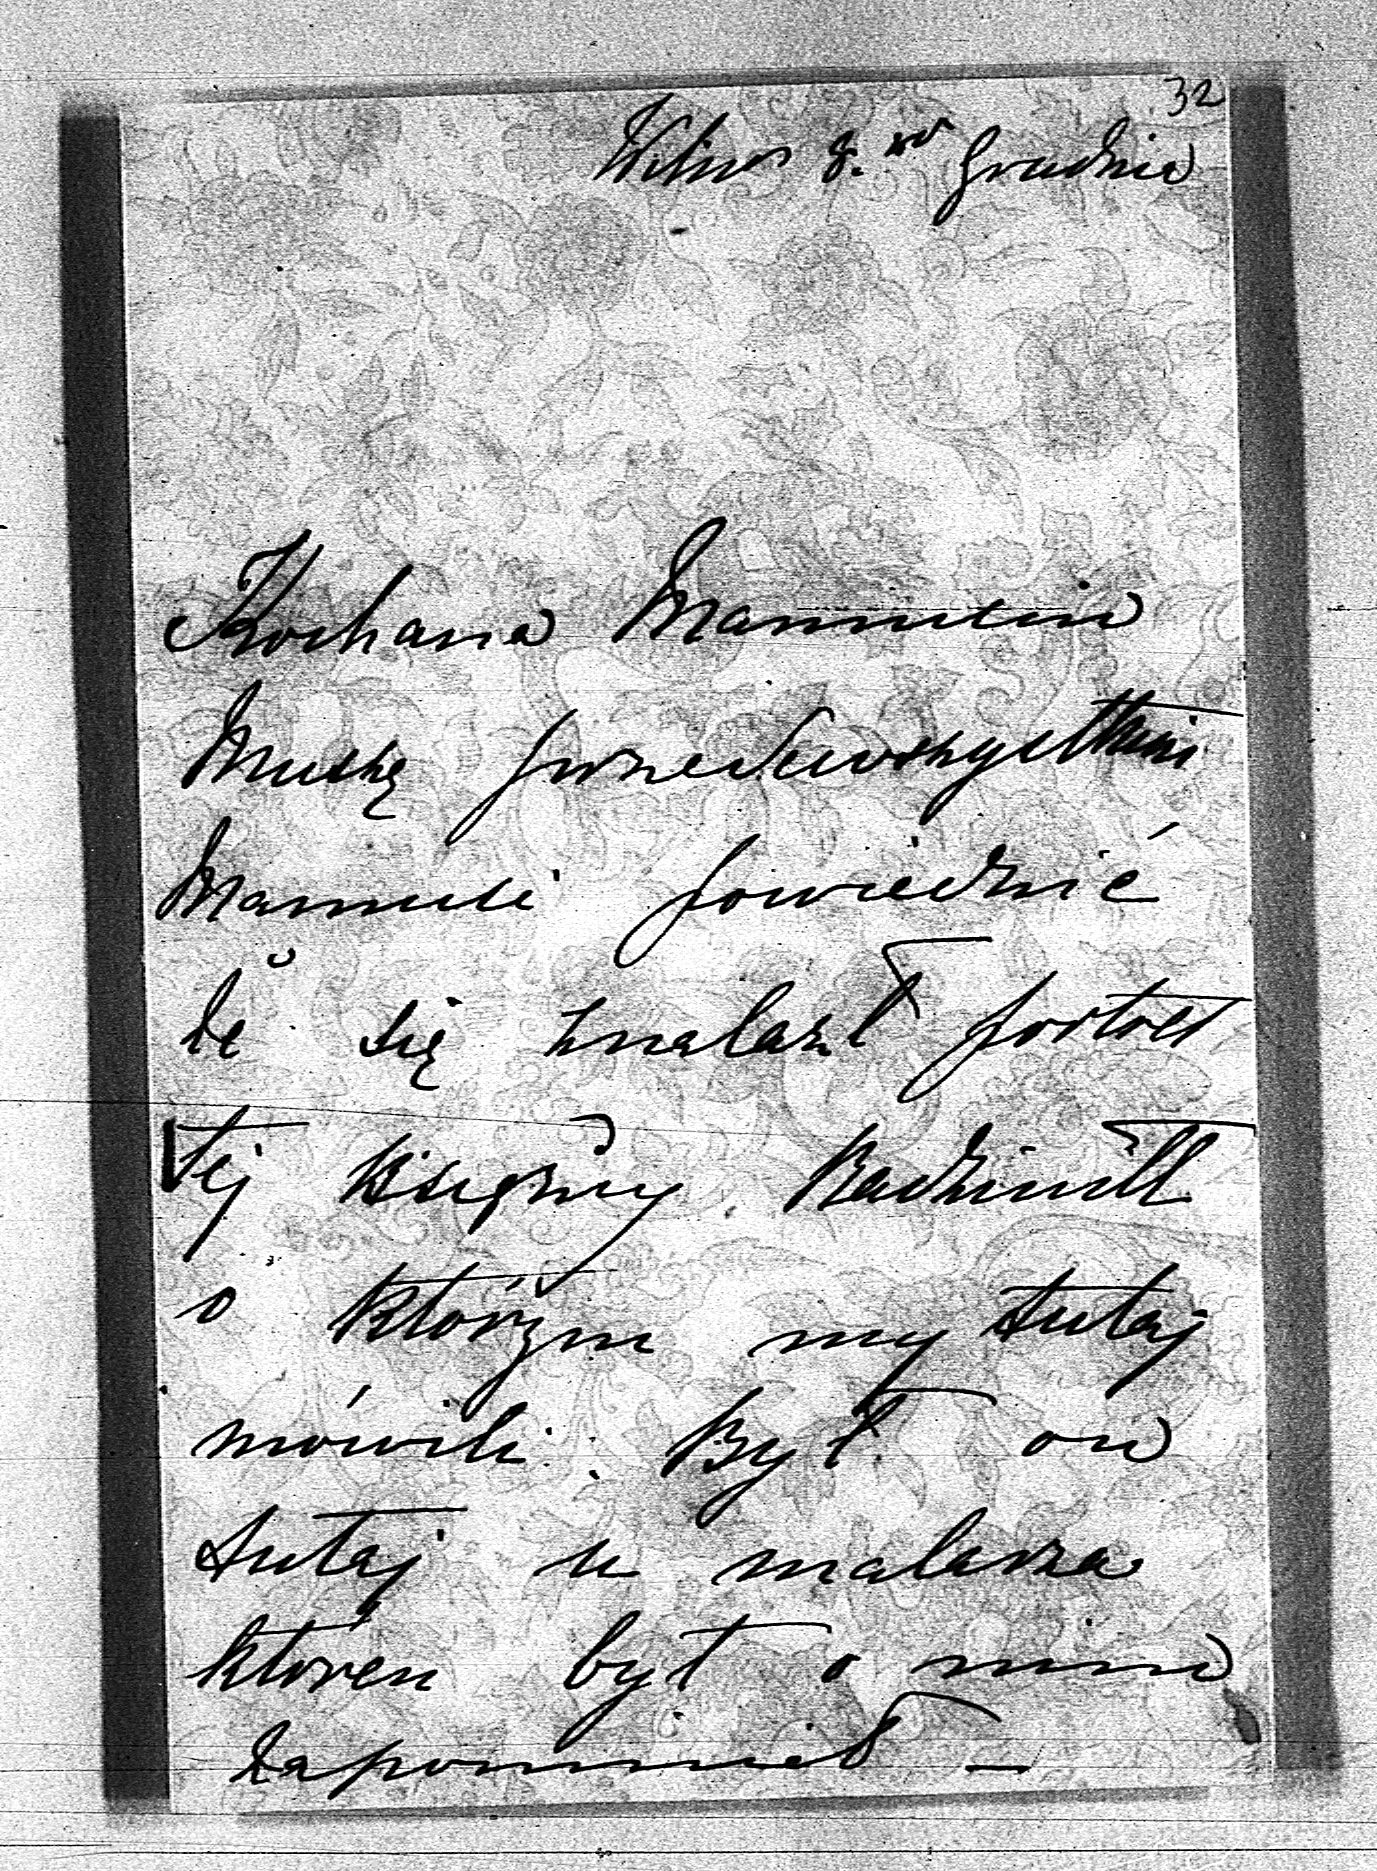 32
Wilno 8. Grudnia
Kochana Mamuniu
Muszę przedewszystkim
Mamusi powiedzić
że się znalazł portret
tej księżny Radziwiłł
o którym my tutaj
mówili. Był on
tutaj u malarza
któren był o nim
zapomniał —